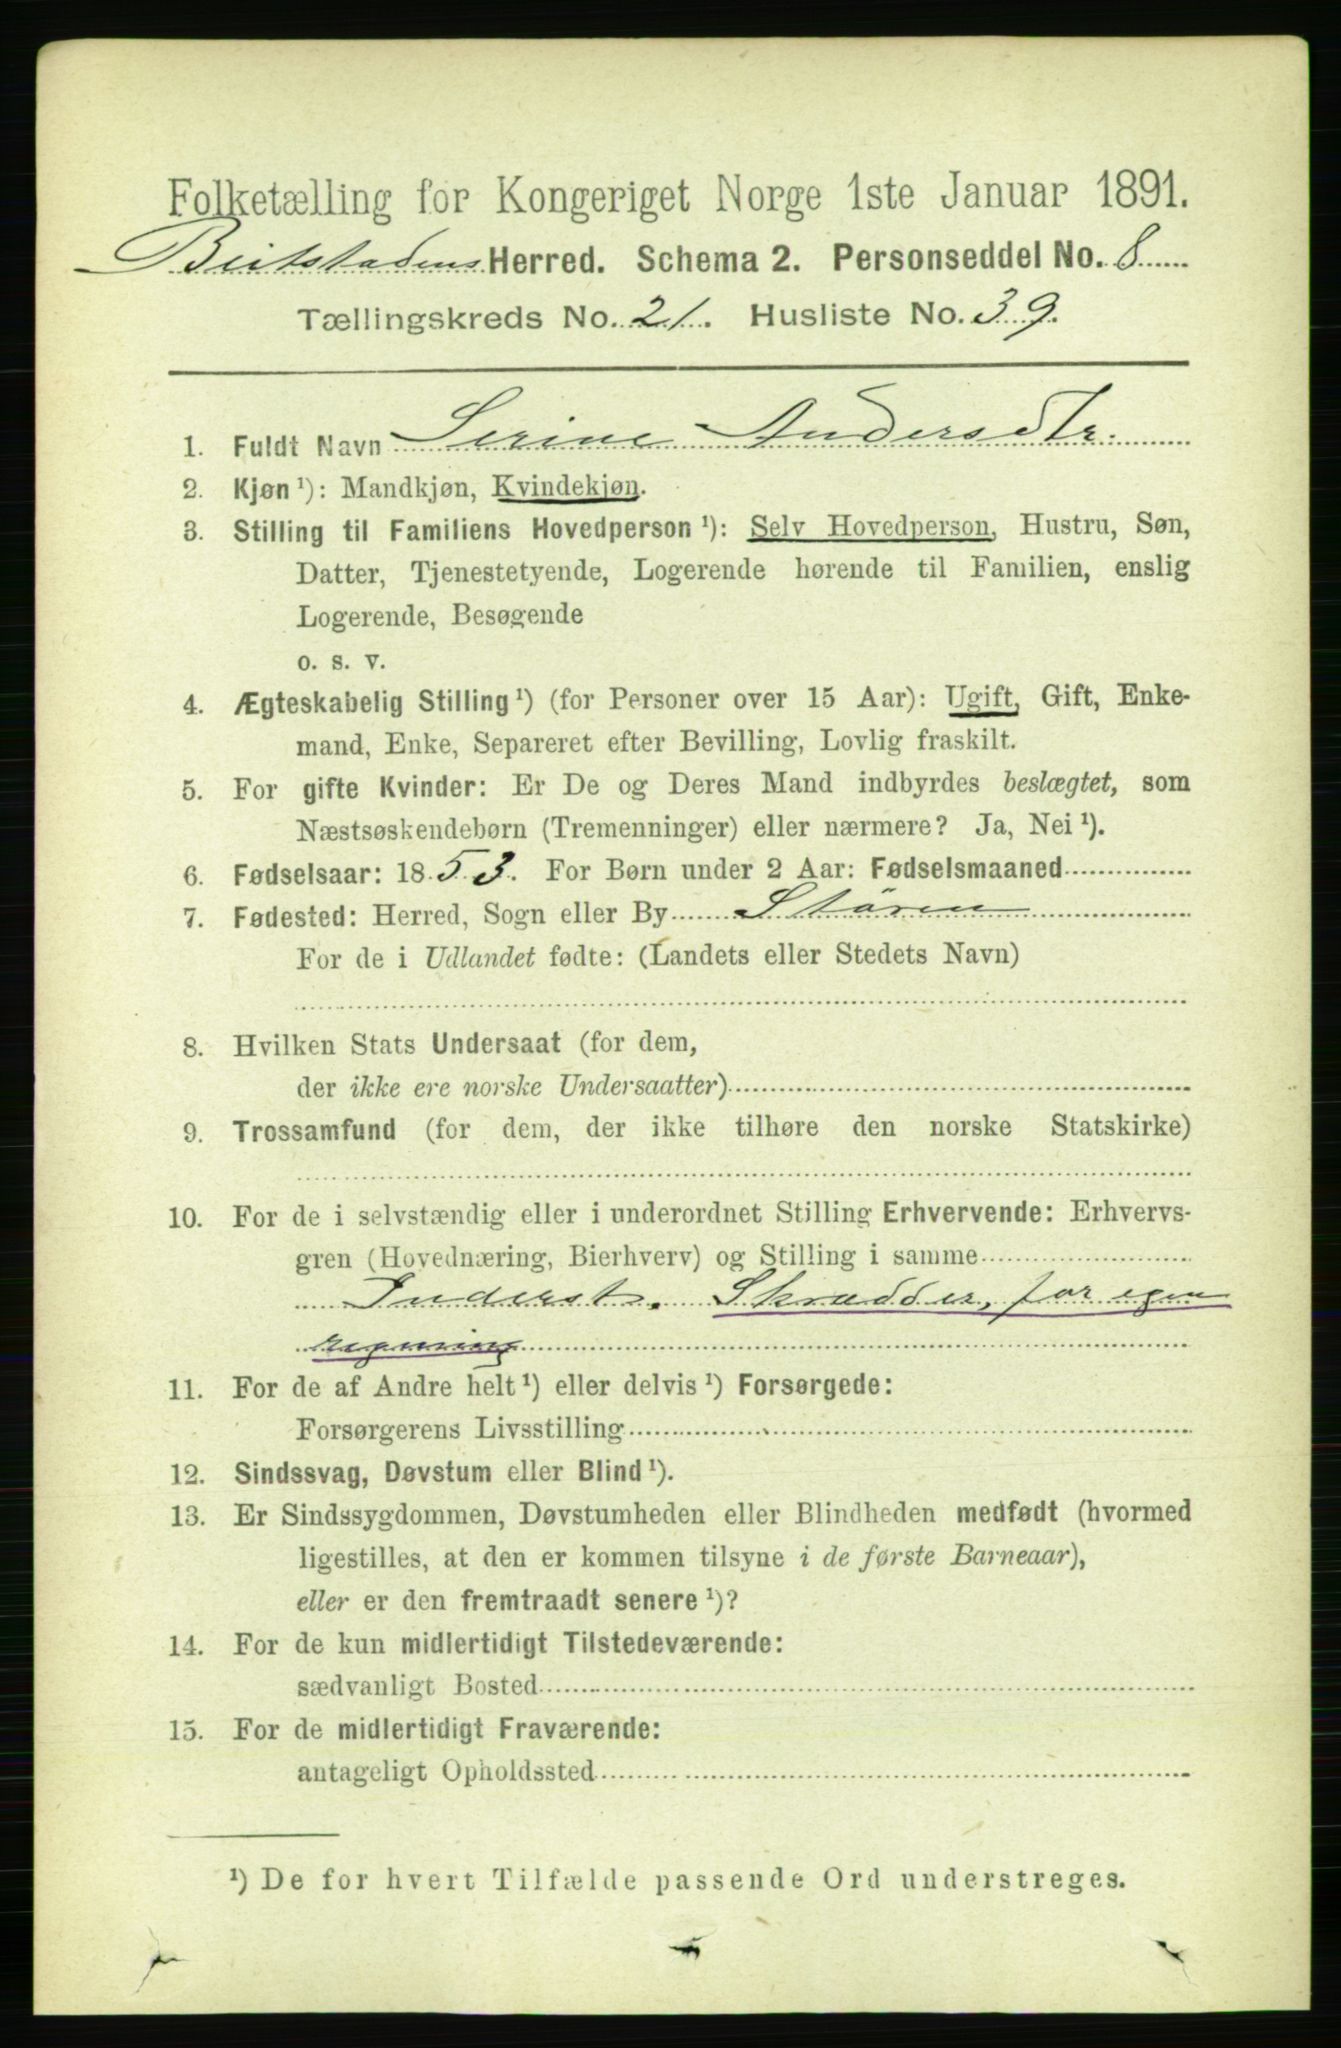 Folketælling for Kongeriget Norge 1ste Januar 1891.
Beitstadens Herred. Schema 2. Personseddel No. 8
Tællingskreds No. 21. Husliste No. 39.
1. Fuldt Navn Serine Andersdtr.
2. Kjøn ¹): Mandkjøn, Kvindekjøn.
3. Stilling til Familiens Hovedperson ¹): Selv Hovedperson, Hustru, Søn,
Datter, Tjenestetyende, Logerende hørende til Familien, enslig
Logerende, Besøgende
o. s. v.
4. Ægteskabelig Stilling ¹) (for Personer over 15 Aar): Ugift, Gift, Enke-
mand, Enke, Separeret efter Bevilling, Lovlig fraskilt.
5. For gifte Kvinder: Er De og Deres Mand indbyrdes beslægtet, som
Næstsøskendebørn (Tremenninger) eller nærmere? Ja, Nei ¹).
6. Fødselsaar: 1853. For Børn under 2 Aar: Fødselsmaaned
7. Fødested: Herred, Sogn eller By Stören
For de i Udlandet fødte: (Landets eller Stedets Navn)
8. Hvilken Stats Undersaat (for dem,
der ikke ere norske Undersaatter)
9. Trossamfund (for dem, der ikke tilhøre den norske Statskirke)
10. For de i selvstændig eller i underordnet Stilling Erhvervende: Erhvervs-
gren (Hovednæring, Bierhverv) og Stilling i samme
Inderst. Skrædder, for egen
regning
11. For de af Andre helt ¹) eller delvis ¹) Forsørgede:
Forsørgerens Livsstilling
12. Sindssvag, Døvstum eller Blind ¹).
13. Er Sindssygdommen, Døvstumheden eller Blindheden medfødt (hvormed
ligestilles, at den er kommen tilsyne i de første Barneaar),
eller er den fremtraadt senere ¹)?
14. For de kun midlertidigt Tilstedeværende:
sædvanligt Bosted
15. For de midlertidigt Fraværende:
antageligt Opholdssted
¹) De for hvert Tilfælde passende Ord understreges.